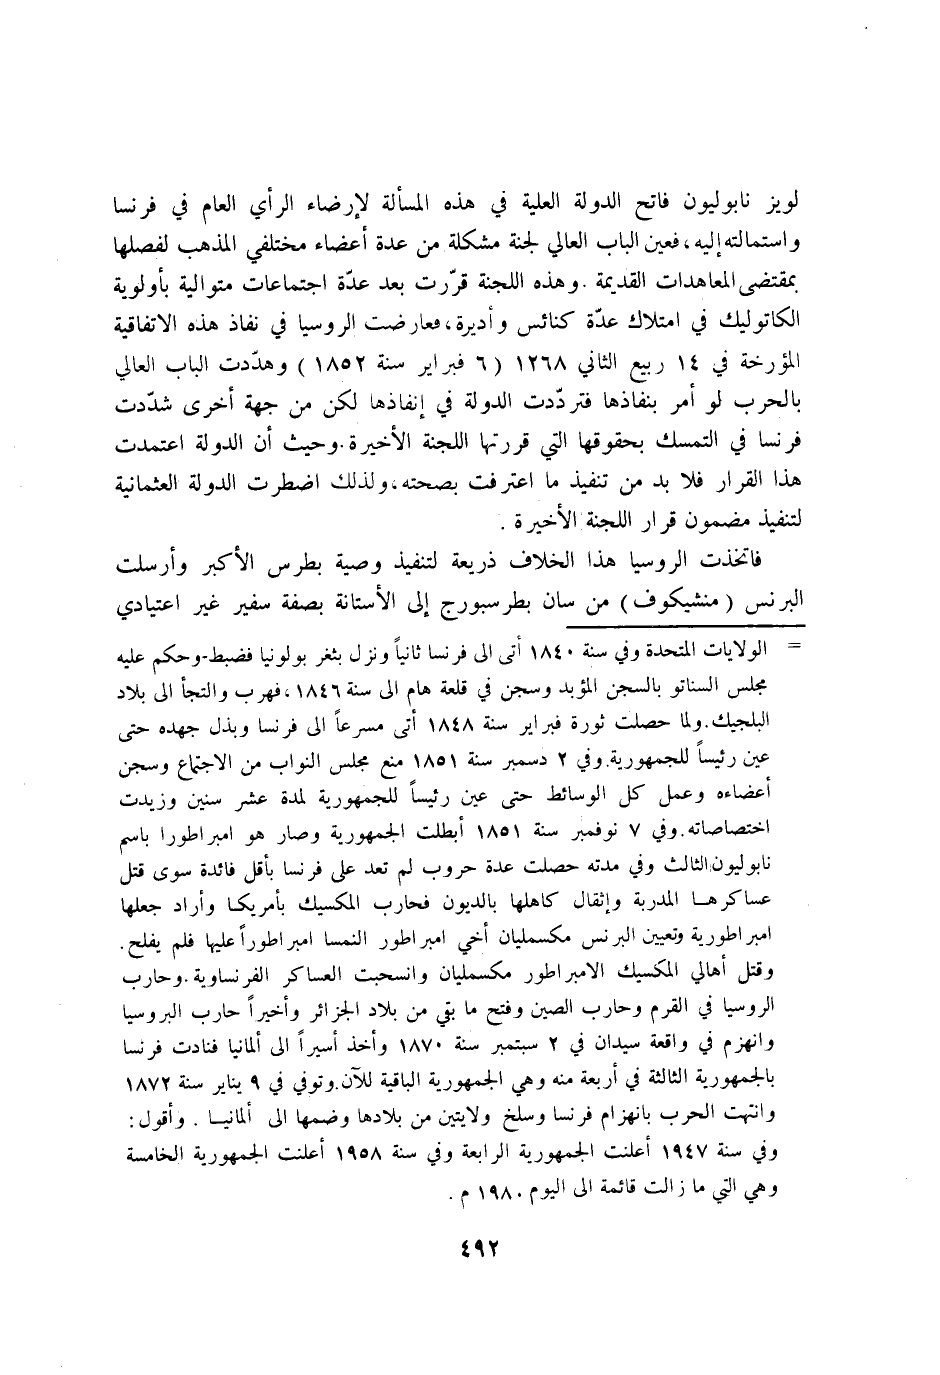 لويز نابوليون فاتح الدولة العلية في هذه المسألة لإرضاء الرأي العام في فرنسا
واستمالته إليه، فعين الباب العالي لجنة مشكلة من عدة أعضاء مختلفي المذهب لفصلها
بمقتضى المعاهدات القديمة. وهذه اللجنة قرّرت بعد عدّة اجتماعات متوالية بأولوية
الكاتوليك في امتلاك عدّة كنائس وأديرة، فعارضت الروسيا في نفاذ هذه الاتفاقية
المؤرخة في ١٤ ربيع الثاني ١٢٦٨ (٦ فبراير سنة ١٨٥٢) وهدّدت الباب العالي
بالحرب لو أمر بنفاذها فتردّدت الدولة في إنفاذها لكن من جهة أخرى شدّدت
فرنسا في التمسك بحقوقها التي قررتها اللجنة الأخيرة. وحيث أن الدولة اعتمدت
هذا القرار فلا بد من تنفيذ ما اعترفت بصحته، ولذلك اضطرت الدولة العثمانية
لتنفيذ مضمون قرار اللجنة الأخيرة .
فاتخذت الروسيا هذا الخلاف ذريعة لتنفيذ وصية بطرس الأكبر وأرسلت
البرنس (منشيكوف) من سان بطرسبورج إلى الأستانة بصفة سفير غير اعتيادي
= الولايات المتحدة وفي سنة ١٨٤٠ أتى الى فرنسا ثانياً ونزل بثغر بولونيا فضبط-وحكم عليه
مجلس السناتو بالسجن المؤبد وسجن في قلعة هام الى سنة ١٨٤٦، فهرب والتجأ الى بلاد
البلجيك. ولما حصلت ثورة فبراير سنة ١٨٤٨ أتى مسرعاً الى فرنسا وبذل جهده حتى
عين رئيساً للجمهورية. وفي ٢ دسمبر سنة ١٨٥١ منع مجلس النواب من الاجتماع وسجن
أعضاءه وعمل كل الوسائط حتى عين رئيساً للجمهورية لمدة عشر سنين وزيدت
اختصاصاته. وفي ٧ نوفمبر سنة ١٨٥١ أبطلت الجمهورية وصار هو امبراطورا باسم
نابوليون الثالث وفي مدته حصلت عدة حروب لم تعد على فرنسا بأقل فائدة سوى قتل
عساكرها المدربة وإثقال كاهلها بالديون فحارب المكسيك بأمريكا وأراد جعلها
امبراطورية وتعيين البرنس مكسمليان أخي امبراطور النمسا امبراطوراً عليها فلم يفلح.
وقتل أهالي المكسيك الامبراطور مكسمليان وانسحبت العساكر الفرنساوية. وحارب
الروسيا في القرم وحارب الصين وفتح ما بقي من بلاد الجزائر وأخيراً حارب البروسيا
وانهزم في واقعة سيدان في ٢ سبتمبر سنة ١٨٧٠ وأخذ أسيراً الى ألمانيا فنادت فرنسا
بالجمهورية الثالثة في أربعة منه وهي الجمهورية الباقية للآن. وتوفي في ٩ يناير سنة ١٨٧٢
وانتهت الحرب بانهزام فرنسا وسلخ ولايتين من بلادها وضمها الى ألمانيا . وأقول:
وفي سنة ١٩٤٧ أعلنت الجمهورية الرابعة وفي سنة ١٩٥٨ أعلنت الجمهورية الخامسة
وهي التي ما زالت قائمة الى اليوم ١٩٨٠ م.
٤٩٢